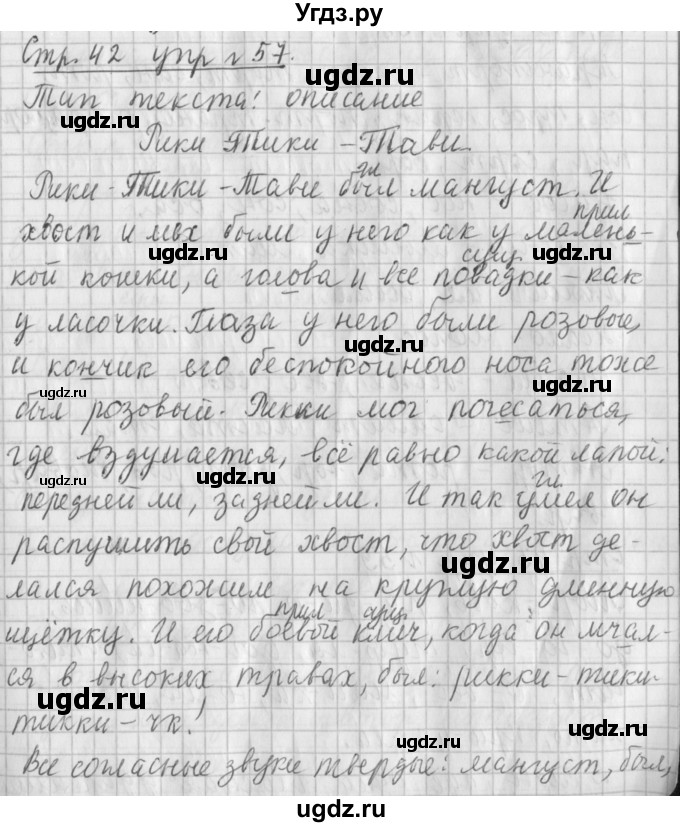 Угдз.ру
Стр. 42 упр № 57.
Тип текста: описание
Рики Тики - Тави.
гл
Рики-Тики-Тави был мангуст. И
прил
хвост и мех были у него как у малень-
сущ
кой кошки, а голова и все повадки - как
у ласочки. Глаза у него были розовые,
и кончик его беспокойного носа тоже
был розовый. Рикки мог почесаться,
где вздумается, всё равно какой лапой:
гл
передней ли, задней ли. И так умел он
распушить свой хвост, что хвост де-
лался похожим на круглую длинную
прил сущ
щётку. И его боевой клич, когда он мчал-
ся в высоких травах, был: рикки-тики
тикки-чк!
Все согласные звуки твердые: мангуст, был,
ugdz.ru